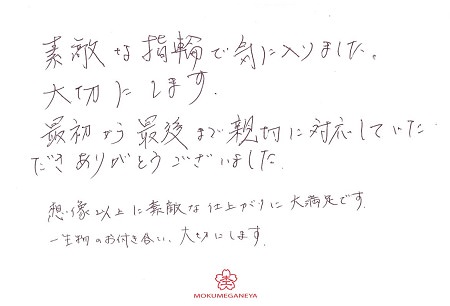 素敵な指輪で気に入りました。
大切にします.
最初から最後まで親切に対応していた
だきありがとうございました.
想像以上に素敵な仕上がりに大満足です.
一生物のお付き合い、大切にします.
MOKUMEGANEYA